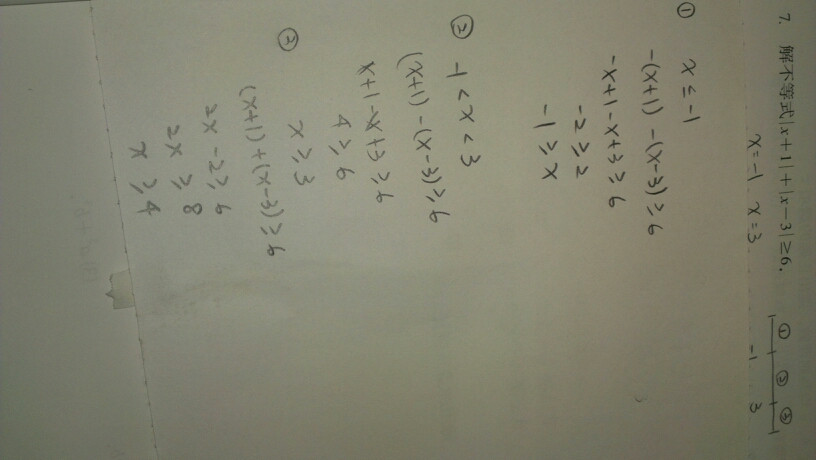 7. 解不等式|x+1|+|x-3|≥6.
x=-1 x=3
① ② ③
-1 3
① x≤-1
-(x+1)-(x-3)≥6
-x+1-x+3≥6
-2≥2
-1≥x
② -1<x<3
(x+1)-(x-3)≥6
x+1-x+3≥6
4≥6
② x≥3
(x+1)+(x-3)≥6
2x-2≥6
2x≥8
x≥4